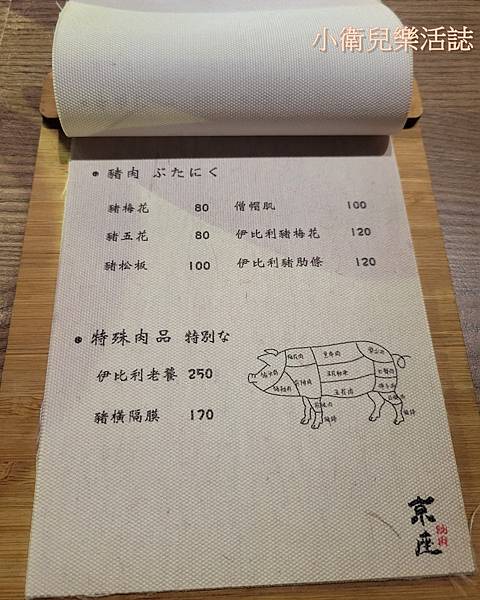 小衛兒樂活誌
豬肉 ぶたにく
豬梅花 80 僧帽肌 100
豬五花 80 伊比利豬梅花 120
豬松板 100 伊比利豬肋條 120
特殊肉品 特別な
伊比利老饕 250
豬橫隔膜 170
京座
燒肉